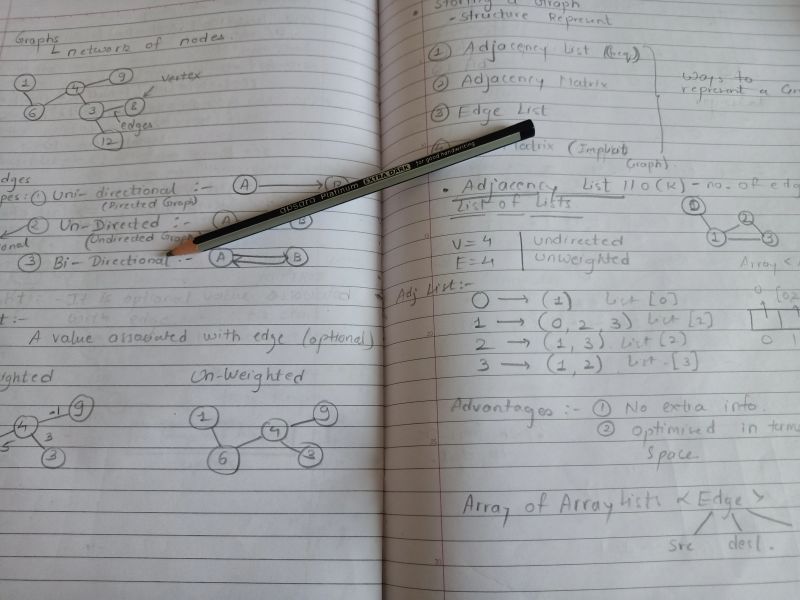 Graphs
L network of nodes.
1
4
9
vertex
6
3
8
edges
12
dges
pes: (1) Uni-directional :- A B
(Directed Graph)
2 Un-Directed :- A B
onal (Undirected Graph)
3 Bi-Directional :- A B
ght: - It is optional value associated
with edge
t:-
A value associated with edge (optional)
ghted Un-Weighted
4 -1 9
5 3
3
1
4 9
6 8
Storing a Graph
- Structure Represent
1 Adjacency List (freq)
2 Adjacency Matrix
3 Edge List
atrix (Implicit
Graph)
Ways to
represent a
apsara Platinum EXTRA DARK for good handwriting
• Adjacency List || O(K) - no. of edge
List of Lists
V = 4 undirected
E = 4 unweighted
0
2
1 3
Array <
Adj List:-
0 → (1) List [0]
1 → (0, 2, 3) List [2]
2 → (1, 3) List (2)
3 → (1, 2) List - [3]
0
0 1
Advantages :- 1 No extra info.
2 optimised in term
Space
Array of Array Lists < Edge >
Src dest.